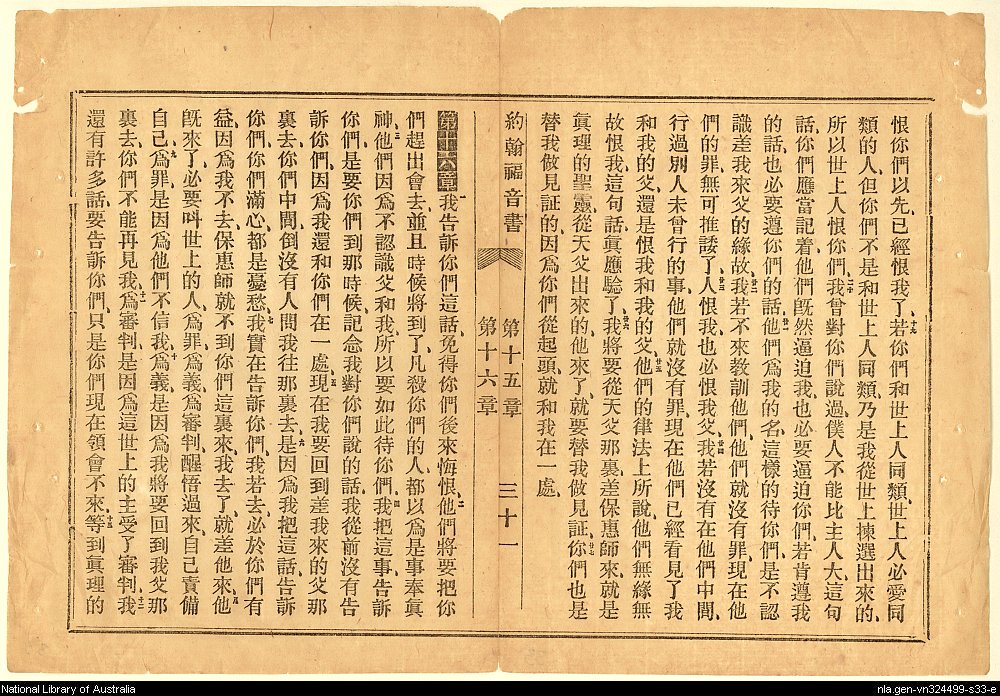 恨你們以先、已經恨我了、十九若你們和世上人同類、世上人必愛同
類的人、但你們不是和世上人同類、乃是我從世上揀選出來的、
所以世上人恨你們、二十我曾對你們說過、僕人不能比主人大、這句
話、你們應當記着、他們旣然逼迫我、也必要逼迫你們、若肯遵我
的話、也必要遵你們的話、廿一他們爲我的名、這樣的待你們、是不認
識差我來父的緣故、廿二我若不來教訓他們、他們就沒有罪、現在他
們的罪無可推諉了、廿三人恨我、也必恨我父、廿四我若沒有在他們中間、
行過別人未曾行的事、他們就沒有罪、現在他們已經看見了我
和我的父、還是恨我和我的父、廿五他們的律法上所說他們無緣無
故恨我、這句話眞應驗了、廿六我將要從天父那裏、差保惠師來、就是
眞理的聖靈、從天父出來的、他來了、就要替我做見証、廿七你們也是
替我做見証的、因爲你們從起頭就和我在一處、
約翰福音書
第十五章
第十六章
三十一
第十六章一我告訴你們這話、免得你們後來悔恨、二他們將要把你
們趕出會去、並且時候將到了、凡殺你們的人、都以爲是事奉眞
神、三他們因爲不認識父和我、所以要如此待你們、四我把這事告訴
你們、是要你們到那時候、記念我對你們說的話、我從前沒有告
訴你們、因爲我還和你們在一處、五現在我要回到差我來的父那
裏去、你們中間、倒沒有人問我往那裏去、六是因爲我把這話告訴
你們、你們滿心都是憂愁、七我實在告訴你們、我若去、必於你們有
益、因爲我不去、保惠師就不到你們這裏來、我去了、就差他來、八他
旣來了、必要叫世上的人、爲罪、爲義、爲審判、醒悟過來、自己責備
自己、九爲罪、是因爲他們不信我、十爲義、是因爲我將要回到我父那
裏去、你們不能再見我、十一爲審判、是因爲這世上的主受了審判、十二我
還有許多話、要告訴你們、只是你們現在領會不來、十三等到眞理的
National Library of Australia
nla.gen-vn324499-s33-e